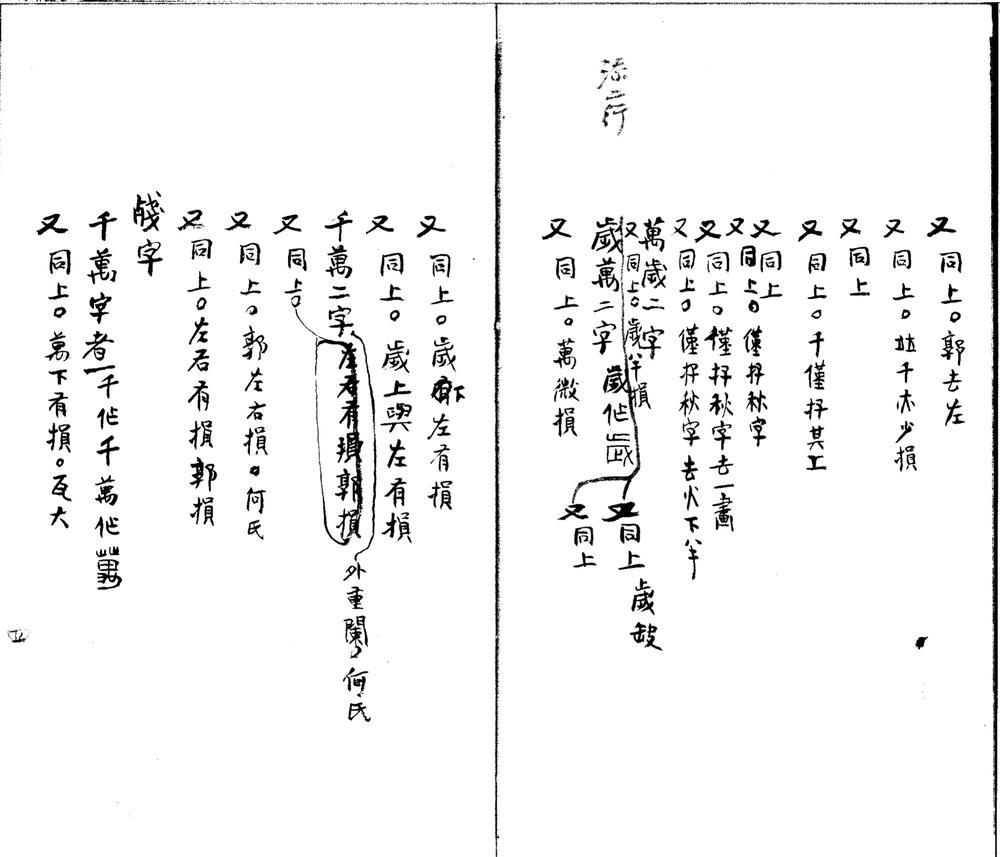 添二行
又 同上。郭去左
又 同上。並千亦少損
又 同上
又 同上。千僅存其工
又 同上
又 同上。僅存秋字
又 同上。僅存秋字去一畫
又 同上。僅存秋字去火下半
萬歲二字
又 同上。歲半損
又 同上 歲缺
又 同上
歲萬二字 歲作
又 同上。萬微損
又 同上。歲下左有損
又 同上。歲上與左有損
千萬二字 左右有損郭損 外重闌，何氏
又 同上。
又 同上。郭左右損。何氏
又 同上。左右有損郭損
殘字
千萬字者一千作千萬作
又 同上。萬下有損。瓦大